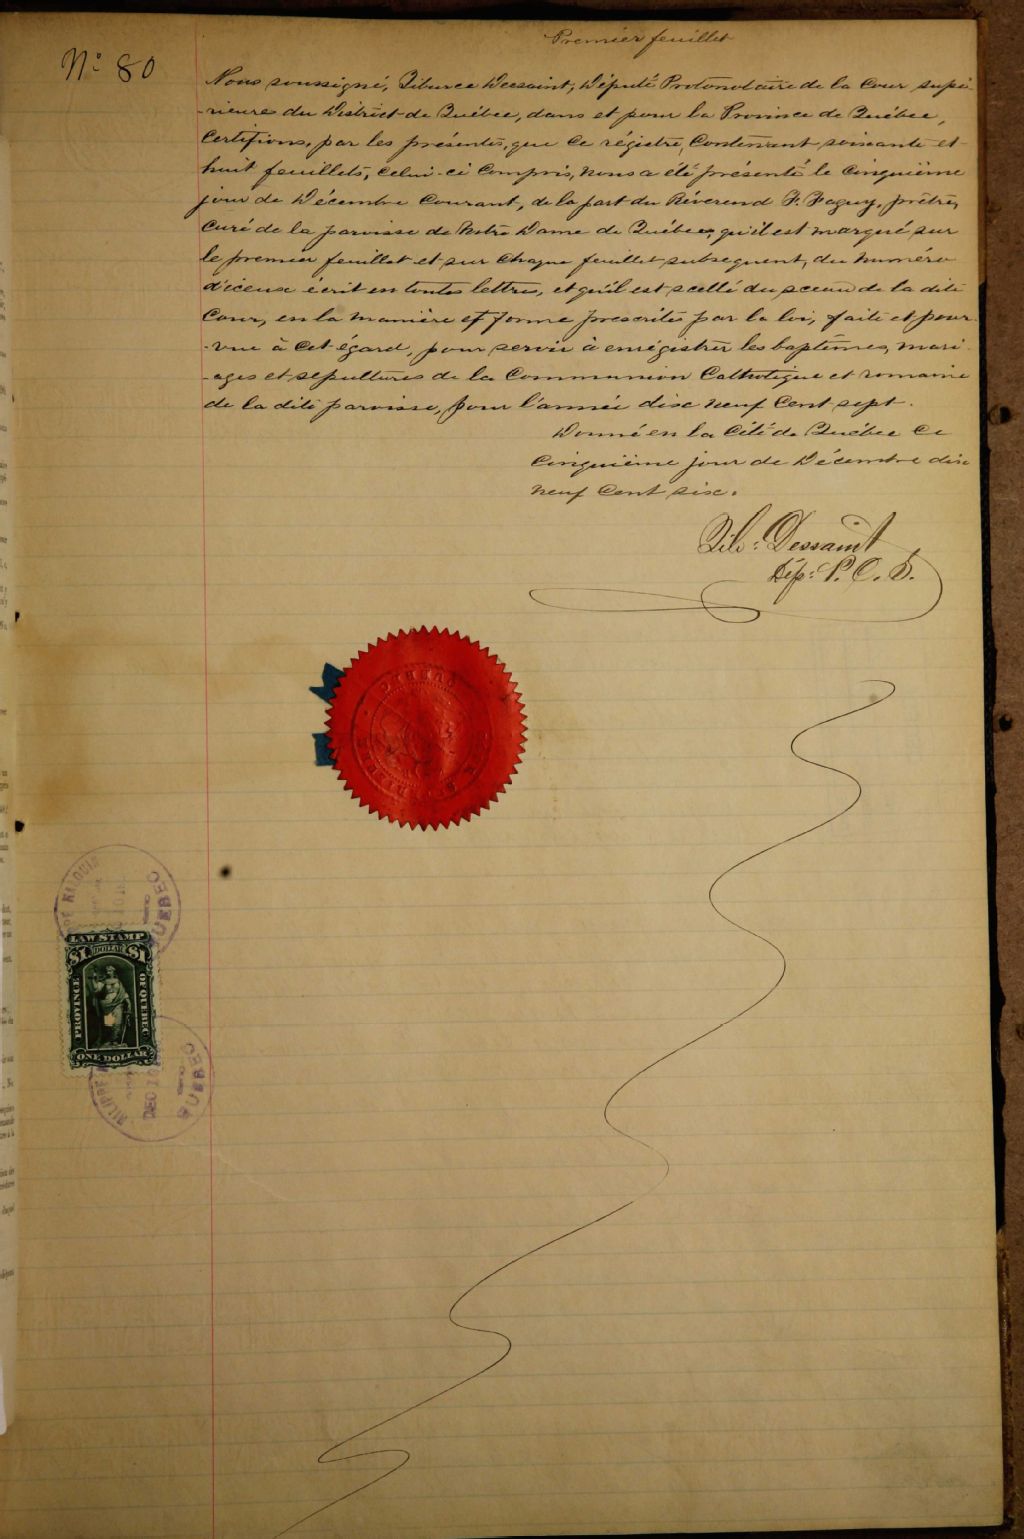 Premier feuillet
N° 80
Nous soussigné, Tiburce Dessaint, Député Protonotaire de la Cour supé-
-rieure du District de Québec, dans et pour la Province de Québec,
Certifions, par les présentes, que ce régistre, Contenant soixante et
huit feuillets, celui-ci Compris, nous a été présenté le Cinquième
jour de Décembre Courant, de la part du Révérend F. Faguy, prêtre,
Curé de la paroisse de Notre Dame de Québec, qu'il est marqué sur
le premier feuillet et sur Chaque feuillet subsequent, du numéro
d'iceux écrit en toutes lettres, et qu'il est scellé du sceau de la dite
Cour, en la manière et forme prescrites par la loi, faite et pour-
-vue à cet égard, pour servir à enrégistrer les baptêmes, mari-
-ages et sépultures de la Communion Catholique et romaine
de la dite paroisse, pour l'année dix neuf Cent sept.
Donné en la Cité de Québec Ce
Cinquième jour de Décembre dix
neuf Cent six.
Tib: Dessaint
Dép: P. C. S.
QUEBEC
LAW STAMP
$1 DOLLAR $1
PROVINCE OF QUEBEC
ONE DOLLAR
DEC 10
QUEBEC